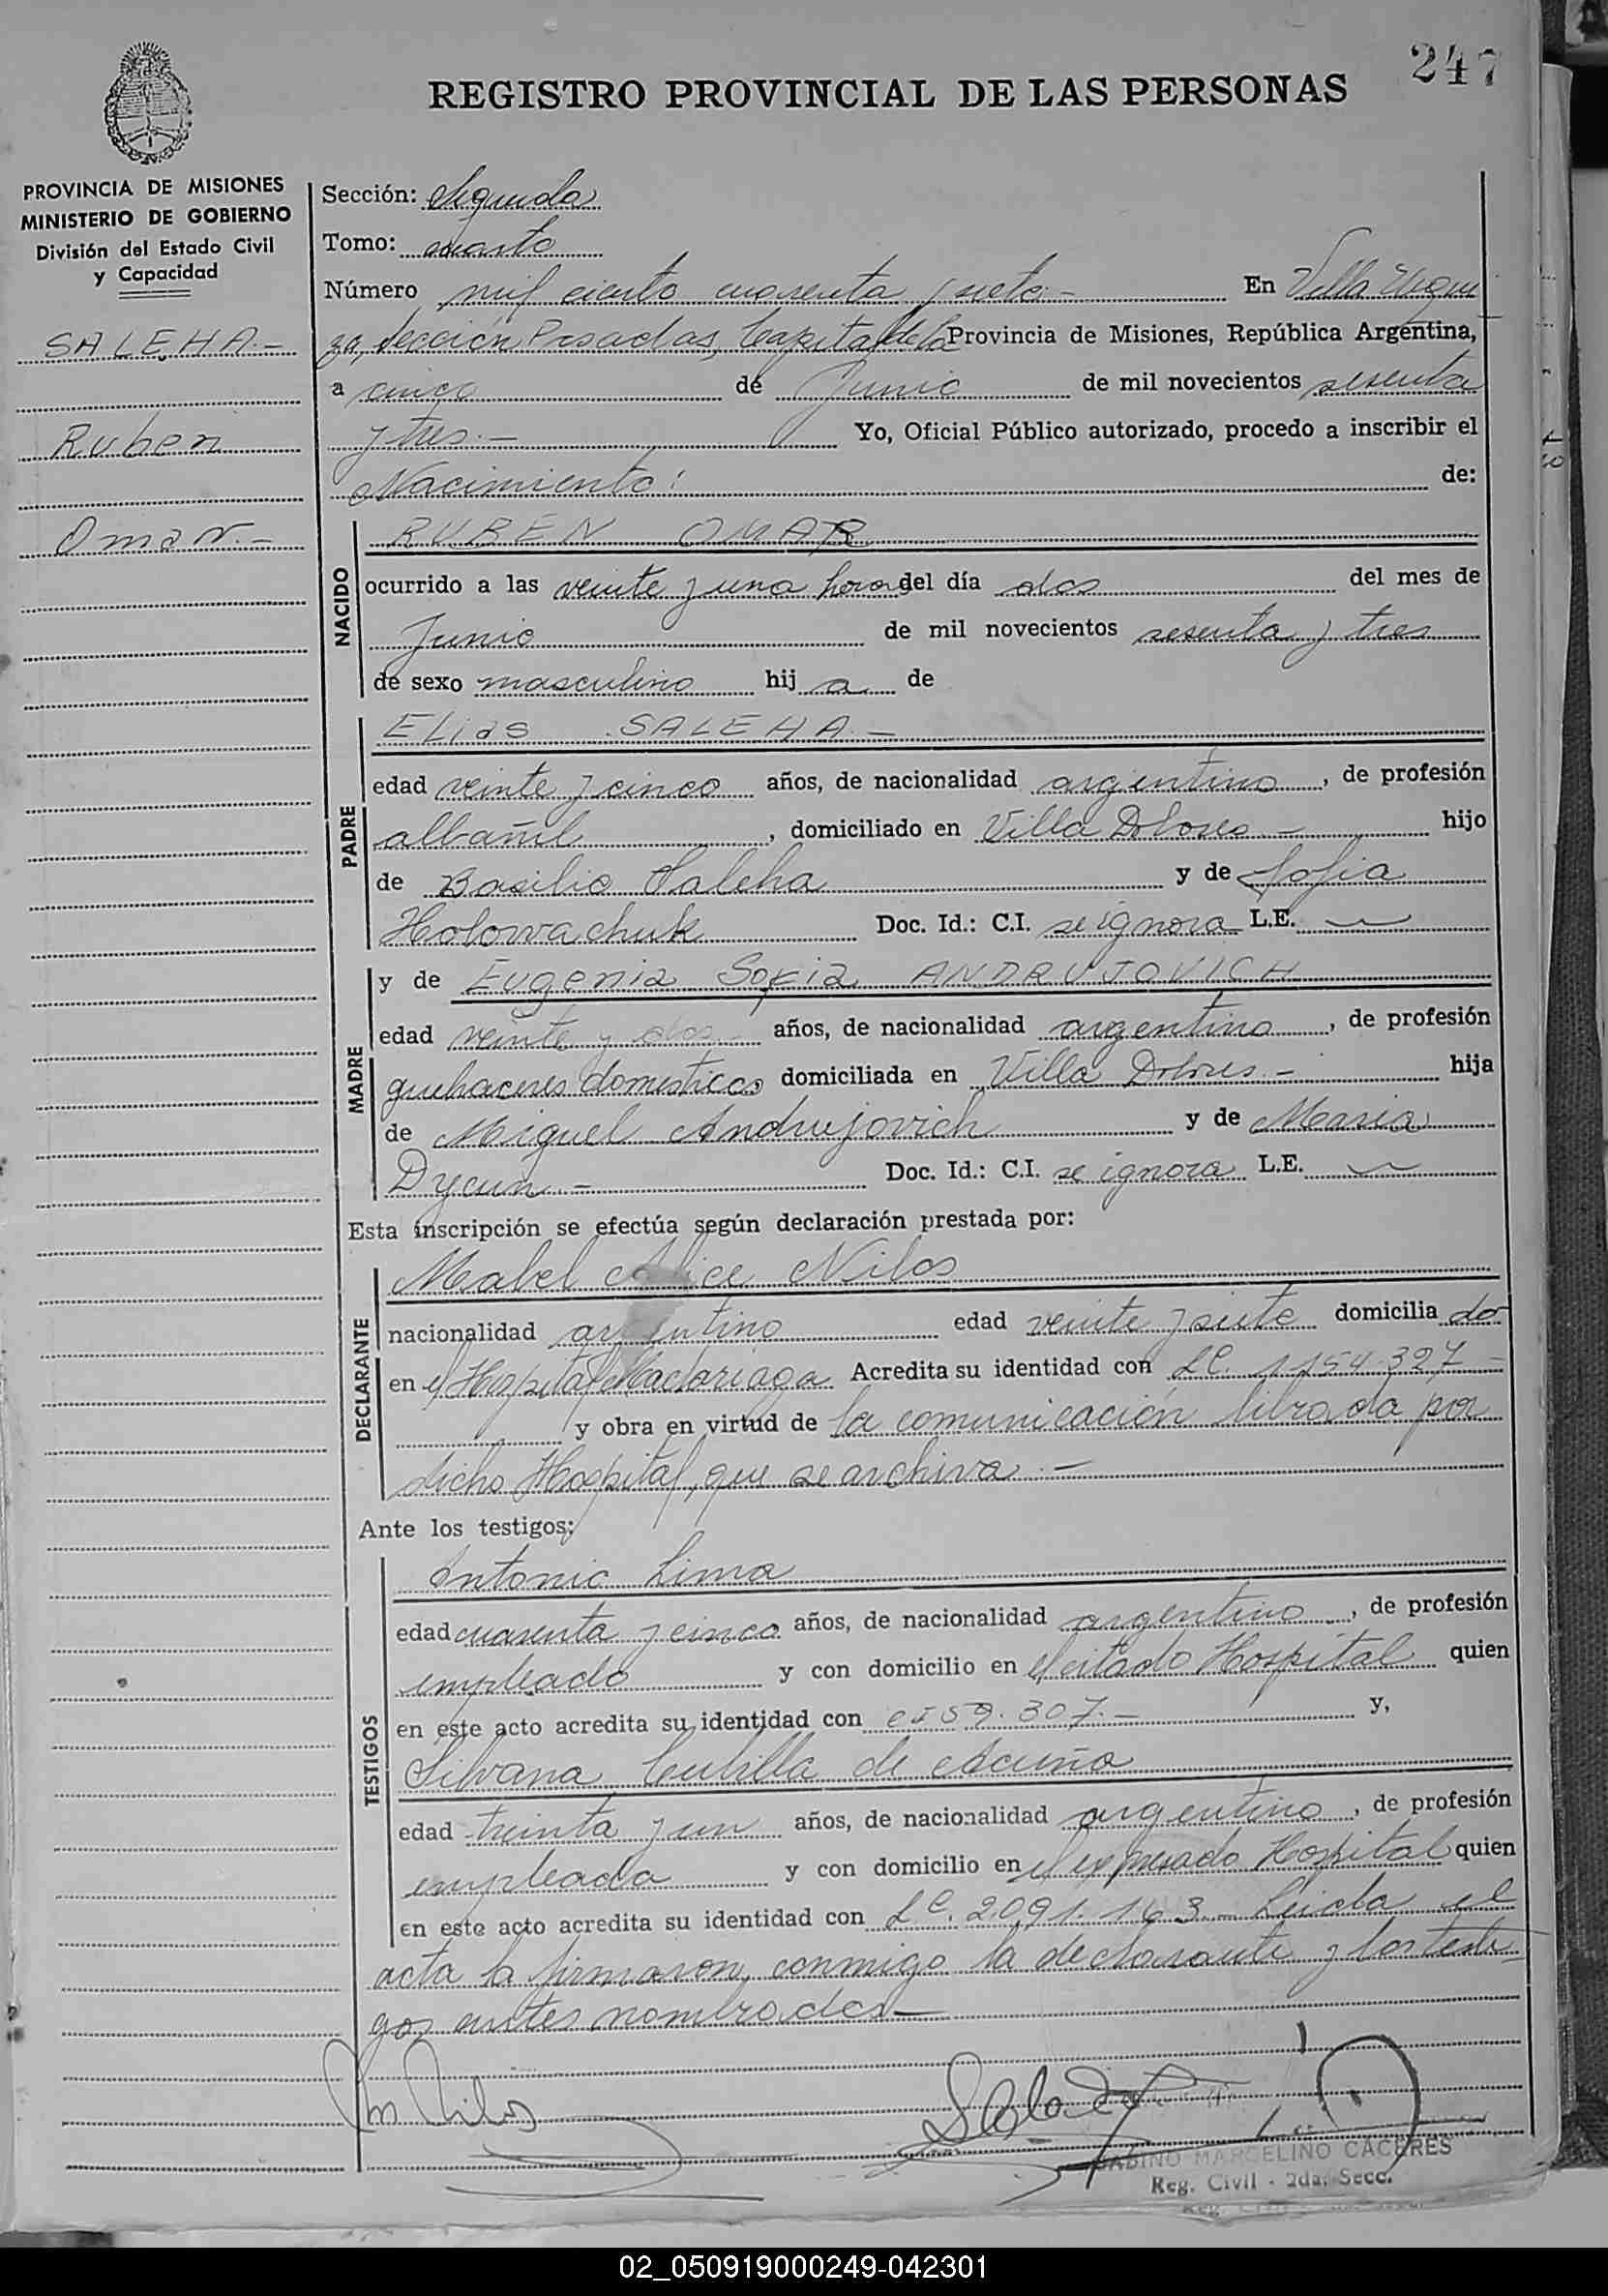 247
REGISTRO PROVINCIAL DE LAS PERSONAS
PROVINCIA DE MISIONES
MINISTERIO DE GOBIERNO
División del Estado Civil
y Capacidad
SALEHA.-
Ruben
Omar.-
Sección: Segunda
Tomo: cuarto
Número mil ciento cuarenta y siete.- En Villa Urqui
za, sección Posadas, Capital de la Provincia de Misiones, República Argentina,
a cinco de Junio de mil novecientos sesenta
y tres.- Yo, Oficial Público autorizado, procedo a inscribir el
Nacimiento: de:
NACIDO
RUBEN OMAR
ocurrido a las veinte y una hora del día dos del mes de
Junio de mil novecientos sesenta y tres
de sexo masculino hij a de
PADRE
Elias SALEHA.-
edad veinte y cinco años, de nacionalidad argentino, de profesión
albañil, domiciliado en Villa Dolores - hijo
de Basilio Saleha y de Sofia
Holowachuk Doc. Id.: C.I. se ignora L.E.
MADRE
y de Eugenia Sofia ANDRUJOVICH
edad veinte y dos años, de nacionalidad argentina, de profesión
quehaceres domesticos domiciliada en Villa Dolores.- hija
de Miguel Andrujovich y de Maria
Dycun.- Doc. Id.: C.I. se ignora L.E.
Esta inscripción se efectúa según declaración prestada por:
DECLARANTE
Mabel Nilos
nacionalidad argentino edad veinte y siete domicilia do
en el Hospital Madariaga Acredita su identidad con LC. 1154.327 -
y obra en virtud de la comunicación librada por
dicho Hospital, que se archiva.-
Ante los testigos:
TESTIGOS
Antonio Lima
edad cuarenta y cinco años, de nacionalidad argentino, de profesión
empleado y con domicilio en el citado Hospital quien
en este acto acredita su identidad con CI 59.307.- y,
Silvana de Acuña
edad treinta y un años, de nacionalidad argentino, de profesión
empleada y con domicilio en el expresado Hospital quien
en este acto acredita su identidad con LC. 2.091.163.- Leida el
acta la firmaron, conmigo la declarante y los testi-
gos antes nombrados-
M Nilos
SABINO MARCELINO CACERES
Reg. Civil - 2da. Secc.
02_050919000249-042301